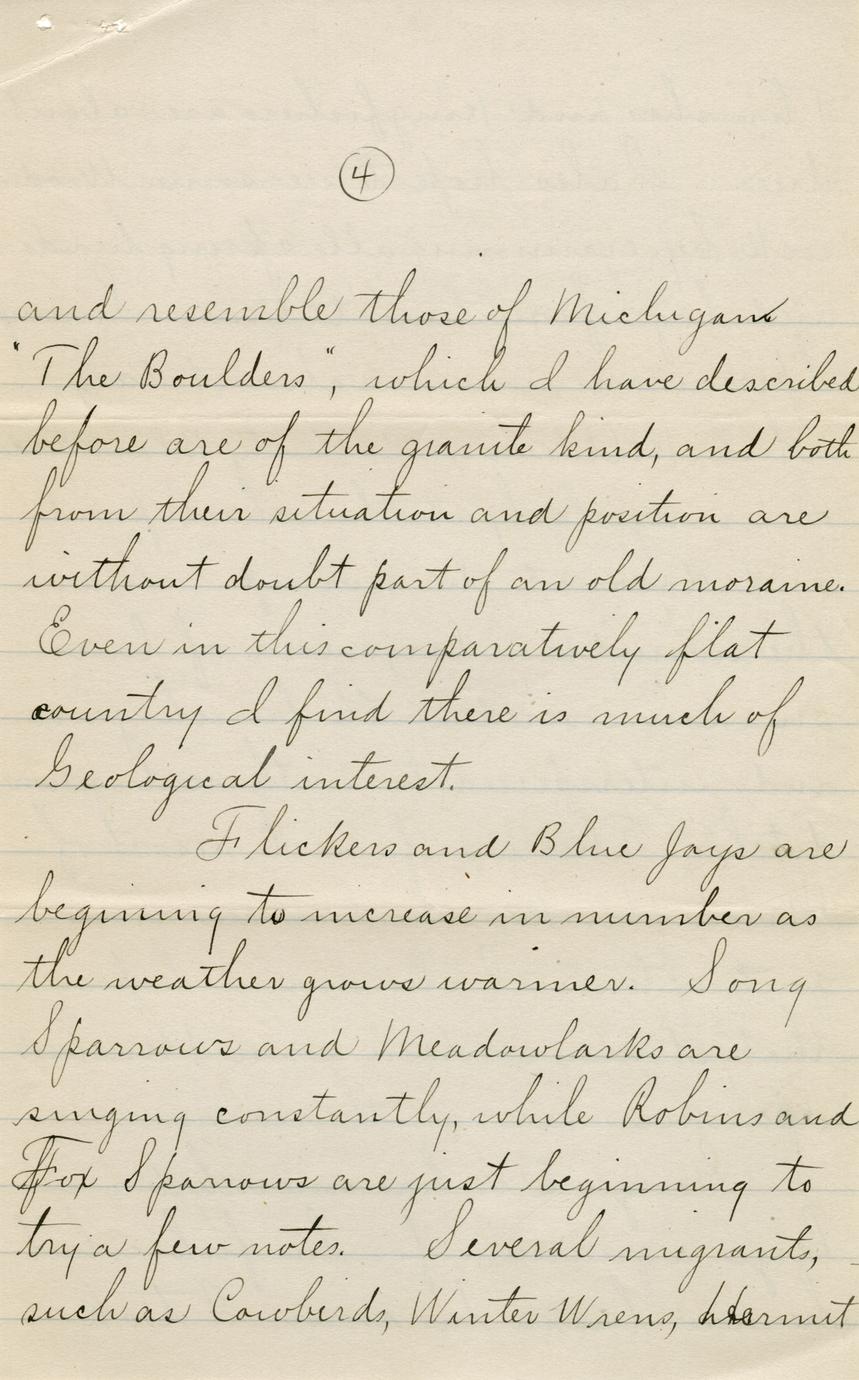 4
and resemble those of Michigan
"The Boulders", which I have described
before are of the granite kind, and both
from their situation and position are
without doubt part of an old moraine.
Even in this comparatively flat
country I find there is much of
Geological interest.
Flickers and Blue Jays are
begining to increase in number as
the weather grows warmer. Song
Sparrows and Meadowlarks are
singing constantly, while Robins and
Fox Sparrows are just beginning to
try a few notes. Several migrants,
such as Cowbirds, Winter Wrens, Hermit